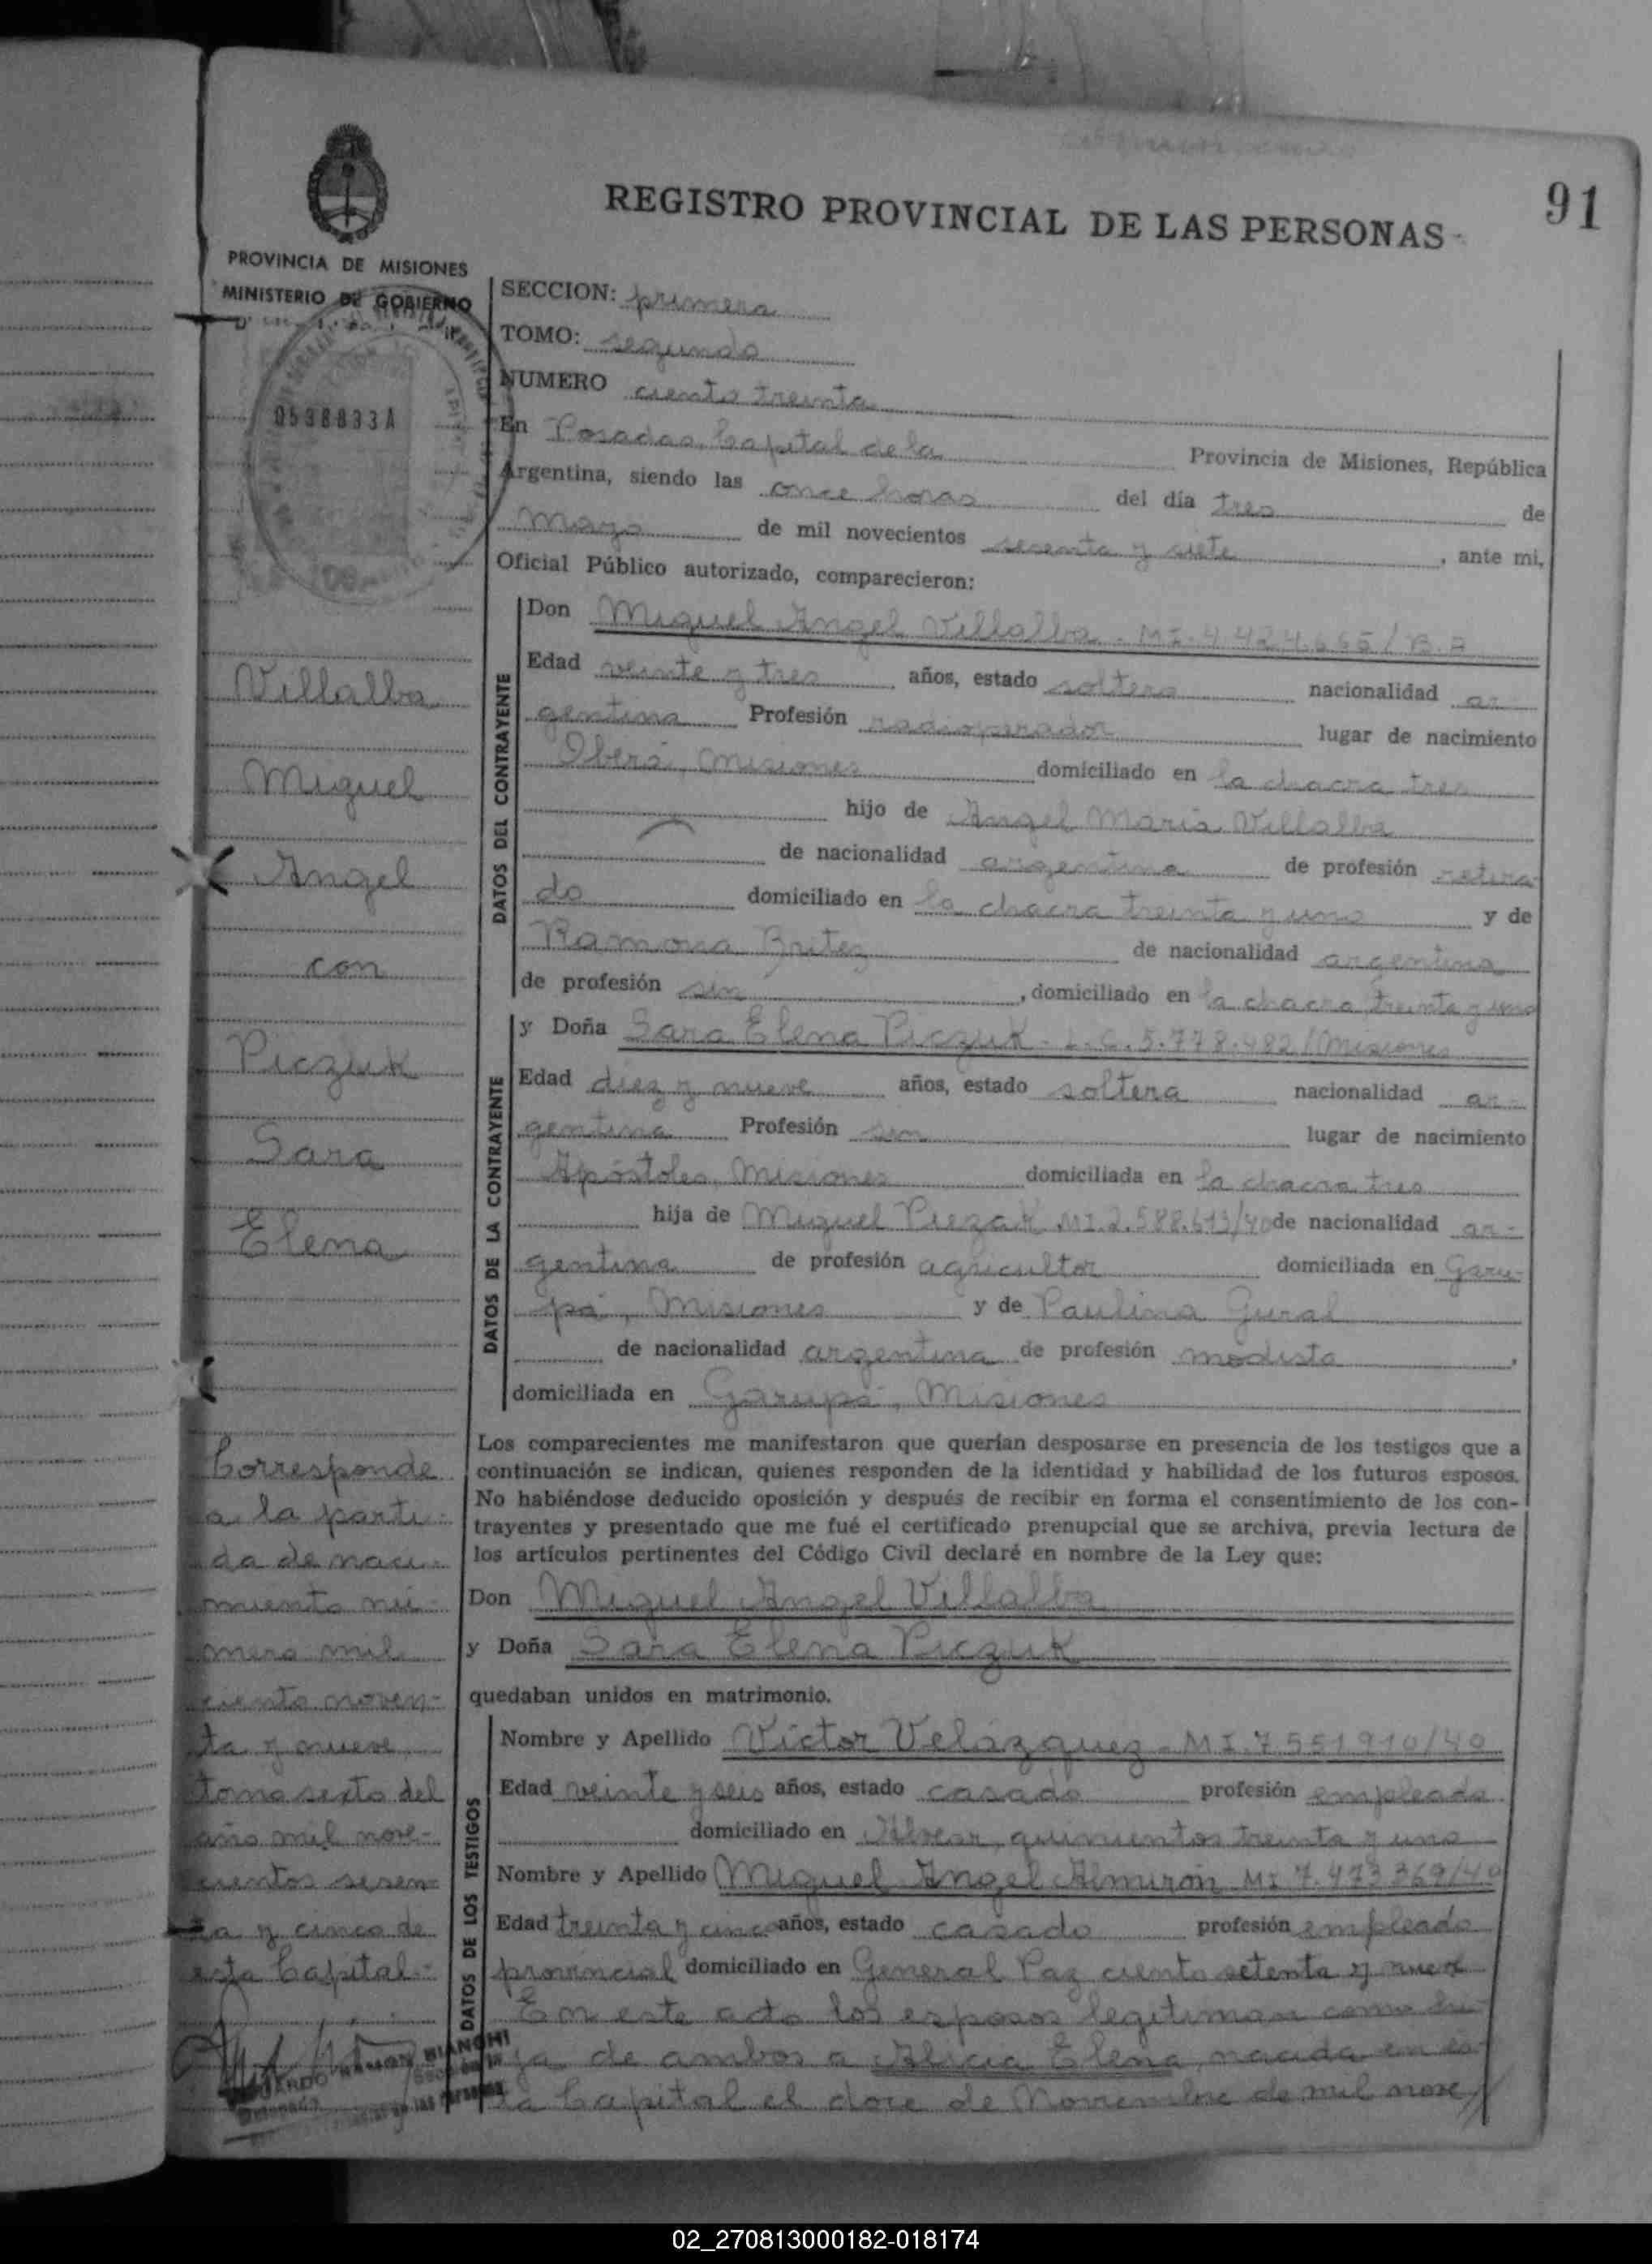 REGISTRO PROVINCIAL DE LAS PERSONAS
91
PROVINCIA DE MISIONES
MINISTERIO DE GOBIERNO
0538833A
Villalba
Miguel
Angel
con
Piczuk
Sara
Elena
Corresponde
a la parti-
da de naci-
miento nú-
mero mil
ciento noven-
ta y nueve
tomo sexto del
año mil nove-
cientos sesen-
ta y cinco de
esta Capital.-
SECCION: primera
TOMO: segundo
NUMERO ciento treinta
En Posadas, Capital de la Provincia de Misiones, República
Argentina, siendo las once horas del día tres de
Mayo de mil novecientos sesenta y siete, ante mi,
Oficial Público autorizado, comparecieron:
DATOS DEL CONTRAYENTE
Don Miguel Angel Villalba. MI. 4.424.655/B.A
Edad veinte y tres años, estado soltero nacionalidad ar-
gentina Profesión radioperador lugar de nacimiento
Oberá, Misiones domiciliado en la chacra tres
hijo de Angel María Villalba
de nacionalidad argentina de profesión retira-
do domiciliado en la chacra treinta y uno y de
Ramona Britez de nacionalidad argentina
de profesión sin, domiciliado en la chacra treinta y uno
DATOS DE LA CONTRAYENTE
y Doña Sara Elena Piczuk - L.C. 5.778.482/Misiones
Edad diez y nueve años, estado soltera nacionalidad ar-
gentina Profesión sin lugar de nacimiento
Apóstoles, Misiones domiciliada en la chacra tres
hija de Miguel MI. 2.588.613/40 de nacionalidad ar-
gentina de profesión agricultor domiciliada en Garu-
pá, Misiones y de Paulina Gural
de nacionalidad argentina de profesión modista,
domiciliada en Garupá, Misiones
Los comparecientes me manifestaron que querían desposarse en presencia de los testigos que a
continuación se indican, quienes responden de la identidad y habilidad de los futuros esposos.
No habiéndose deducido oposición y después de recibir en forma el consentimiento de los con-
trayentes y presentado que me fué el certificado prenupcial que se archiva, previa lectura de
los artículos pertinentes del Código Civil declaré en nombre de la Ley que:
Don Miguel Angel Villalba
y Doña Sara Elena Piczuk
quedaban unidos en matrimonio.
DATOS DE LOS TESTIGOS
Nombre y Apellido Víctor Velázquez - MI. 7.551.910/40
Edad veinte y seis años, estado casado profesión empleado
domiciliado en Alvear, quinientos treinta y uno
Nombre y Apellido Miguel Angel Almirón MI 7.473.369/40
Edad treinta y cinco años, estado casado profesión empleado
provincial domiciliado en General Paz ciento setenta y nueve
En este acto los esposos legitiman como hi-
ja de ambos a Alicia Elena, nacida en es-
ta Capital el doce de Noviembre de mil nove
RAMON BIANCHI
02_270813000182-018174